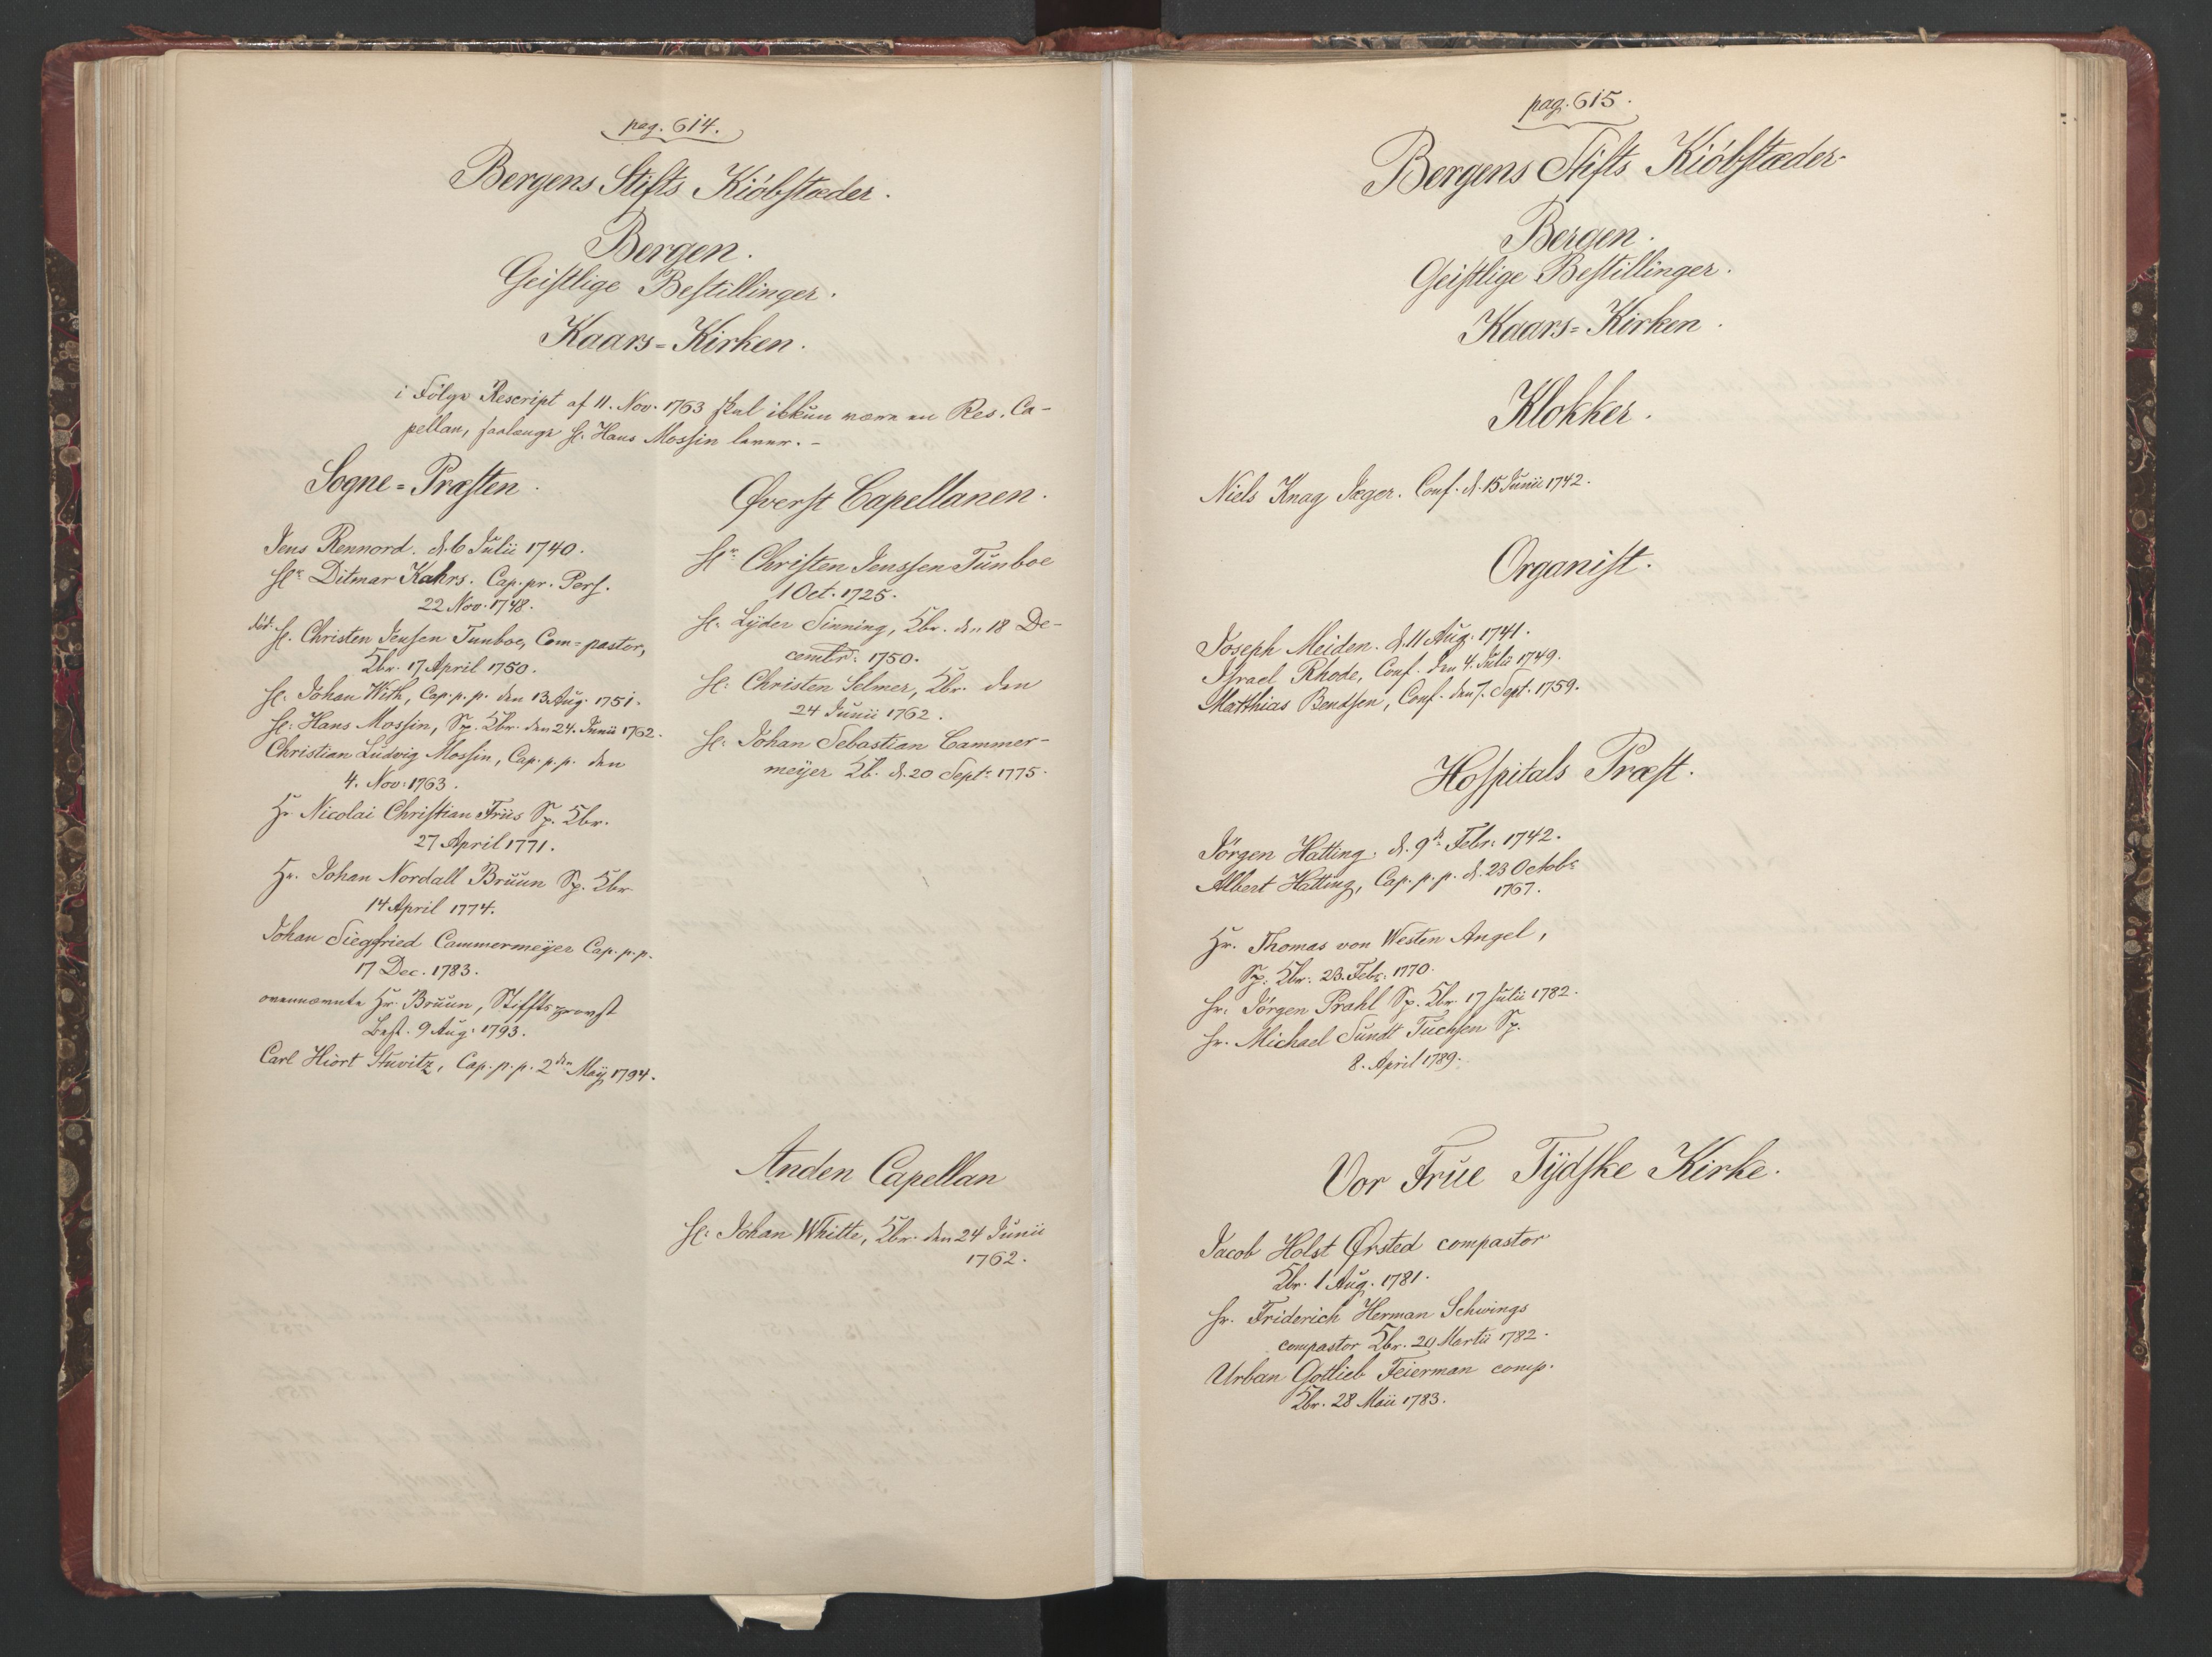 pag. 614.
Bergens Stifts Kiöbstæder.
Bergen.
Geistlige Bestillinger.
Kaars=Kirken.
i Fölge Rescript af 11. Nov. 1763 skal ikkun være en Res. Ca-
pellan, saalænge Hr. Hans Mossin lever. -
Sogne=Præsten.
Jens Rennord. d. 6 Julii 1740.
Hr. Ditmar Kahrs. Cap. pr. Pers.
22 Nov. 1748.
död. Hr. Christen Jensen Tunboe, Com=pastor,
Kbr. 17 April 1750.
Hr. Johan With, Cap. p. p. den 13 Aug. 1751.
Hr. Hans Mossin, Sp. Kbr. den 24. Junii 1762.
Christian Ludvig Mossin, Cap. p. p. den
4. Nov. 1763.
Hr. Nicolai Christian Friis Sp. Kbr.
27 April 1771.
Hr. Johan Nordall Bruun Sp. Kbr
14 April 1774.
Johan Siegfried Cammermeÿer Cap. p. p.
17 Dec. 1783.
ovennævnte Hr. Bruun, Stiftsprovst
Best. 9 Aug. 1793.
Carl Hiort Stuvitz, Cap. p. p. 2den Maÿ 1794.
Øverst Capellanen.
Hr. Christen Jenssen Tunboe
1 Oct. 1725.
Hr. Lÿder Sinning, Kbr. den 18 De-
cembr: 1750.
Hr. Christen Selmer, Kbr. den
24 Junii 1762.
Hr. Johan Sebastian Cammer-
meÿer Kb. d. 20 Septr 1775.
Anden Capellan
Hr. Johan Whitte, Kbr. den 24 Junii
1762.
pag. 615.
Bergens Stifts Kiöbstæder
Bergen.
Geistlige Bestillinger.
Kaars=Kirken.
Klokker.
Niels Knag Jæger. Conf. d. 15 Junii 1742.
Organist.
Joseph Meiden. d. 11 Aug. 1741.
Israel Rhode, Conf. den 4. Julii 1749.
Matthias Bendsen, Conf. den 7. Sept. 1759.
Hospitals Præst.
Jörgen Hatting. d. 9d Febr: 1742.
Albert Hatting, Cap. p. p. d. 23 Octobr
1767.
Hr. Thomas von Westen Angel,
Sp. Kbr. 23. Febr: 1770.
Hr. Jörgen Prahl Sp. Kbr. 17 Julii 1782.
Hr. Michael Sundt Tuchsen Sp.
8. April 1789.
Vor Frue Tÿdske Kirke.
Jacob Holst Ørsted compastor
Kbr. 1 Aug. 1781.
Hr. Friderich Herman Schwings
compastor Kbr. 20 Martii 1782.
Urban Gottlieb Feierman comp.
Kbr. 28 Maii 1783.